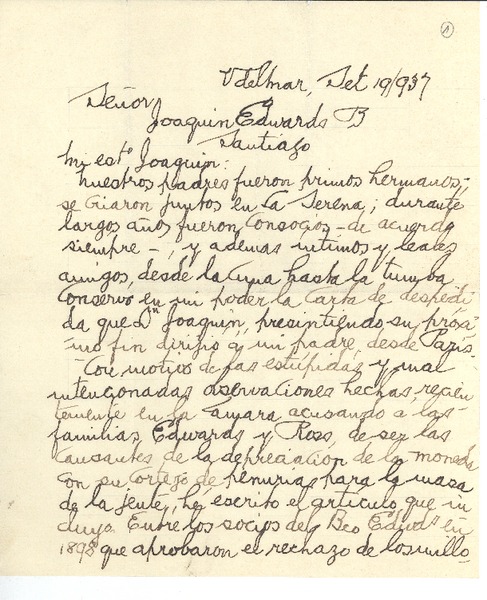 1
V del mar, Set 19/937
Señor
Joaquin Edwards B
Santiago
Mi est° Joaquin:
Nuestros padres fueron primos hermanos;
se criaron juntos en La Serena; durante
largos años fueron consocios - de acuerdo
siempre -, y ademas intimos y leales
amigos, desde la cuna hasta la tumba
Conservo en mi poder la carta de despedi-
da que Dn Joaquin, presintiendo su próxi-
mo fin dirijio a mi padre, desde Paris.
Con motivo de las estupidas y mal
intencionadas observaciones hechas, recien
temente en la Camara acusando a las
familias Edwards y Ross, de ser las
causantes de la depreciacion de la moneda
con su cortejo de penurias para la masa
de la jente, hé escrito el artículo que in
cluyo. Entre los socios del Bco Edwds en
1898 que aprobaron el rechazo de los millo